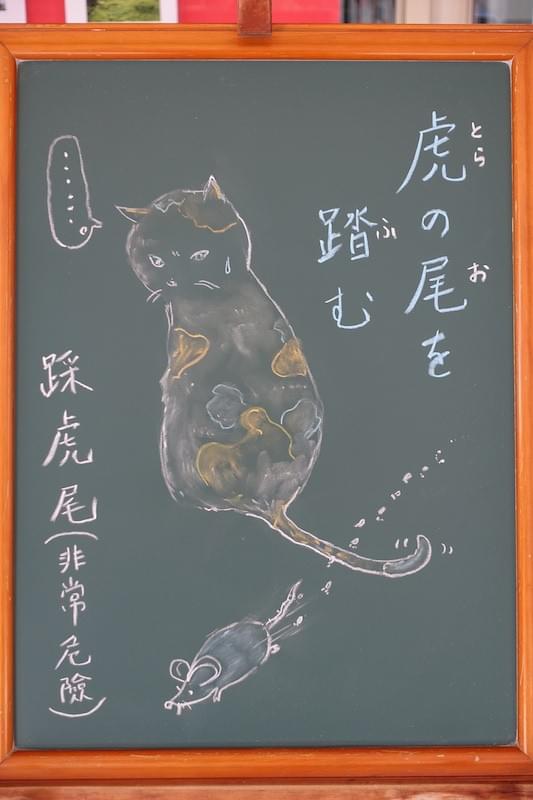 虎の尾を
とら
お
踏む
ふ
踩虎尾(非常危險)
......